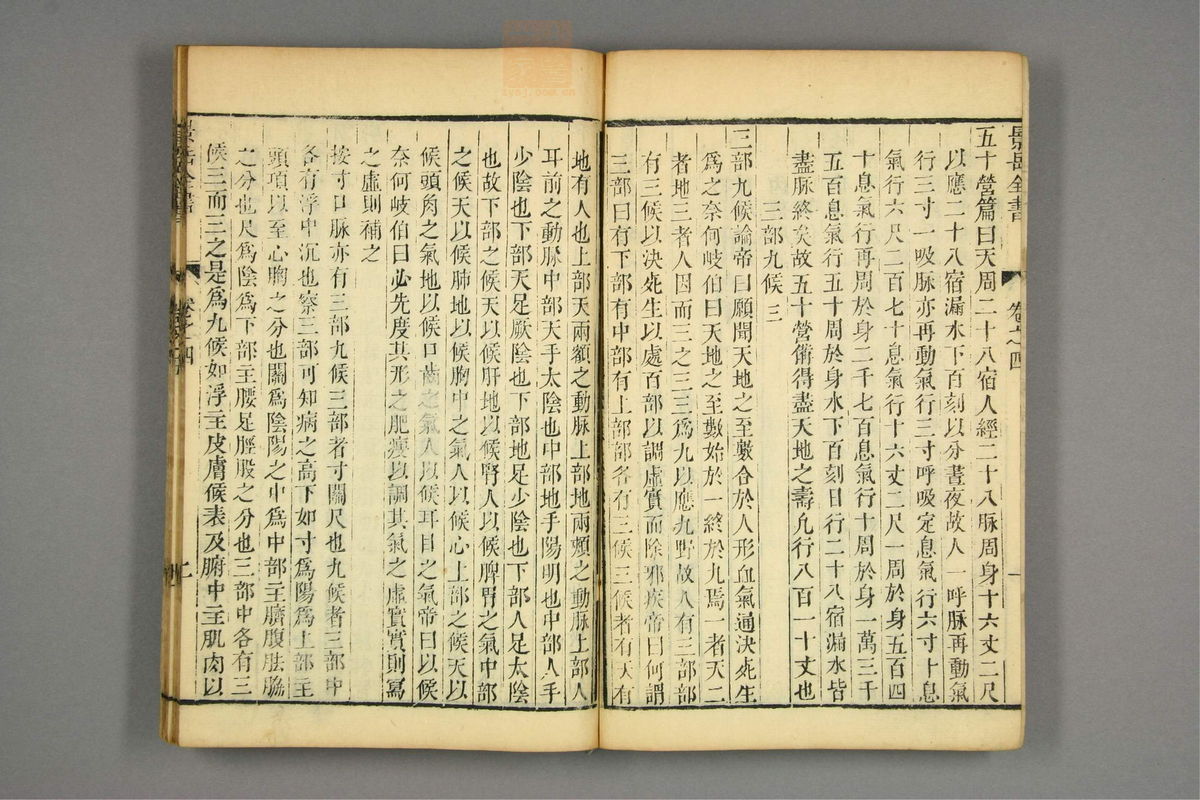 景岳全書
卷之四
一
五十營篇曰天周二十八宿人經二十八脉周身十六丈二尺
以應二十八宿漏水下百刻以分晝夜故人一呼脉再動氣
行三寸一吸脉亦再動氣行三寸呼吸定息氣行六寸十息
氣行六尺二百七十息氣行十六丈二尺一周於身五百四
十息氣行再周於身二千七百息氣行十周於身一萬三千
五百息氣行五十周於身水下百刻日行二十八宿漏水皆
盡脉終矣故五十營備得盡天地之壽凢行八百一十丈也
三部九候三
三部九候論帝曰願聞天地之至數合於人形血氣通決死生
爲之奈何岐伯曰天地之至數始於一終於九焉一者天二
者地三者人因而三之三三爲九以應九野故人有三部部
有三候以決死生以處百部以調虛實而除邪疾帝曰何謂
三部曰有下部有中部有上部部各有三候三候者有天有
地有人也上部天兩額之動脉上部地兩頰之動脉上部人
耳前之動脉中部天手太陰也中部地手陽明也中部人手
少陰也下部天足厥陰也下部地足少陰也下部人足太陰
也故下部之候天以候肝地以候腎人以候脾胃之氣中部
之候天以候肺地以候胸中之氣人以候心上部之候天以
候頭角之氣地以候口齒之氣人以候耳目之氣帝曰以候
奈何岐伯曰必先度其形之肥瘦以調其氣之虛實實則寫
之虛則補之
按寸口脉亦有三部九候三部者寸關尺也九候者三部中
各有浮中沉也察三部可知病之高下如寸爲陽爲上部主
頭項以至心胸之分也關爲陰陽之中爲中部主臍腹胠脇
之分也尺爲陰爲下部主腰足脛股之分也三部中各有三
候三而三之是爲九候如浮主皮膚候表及腑中主肌肉以
卷之四
二